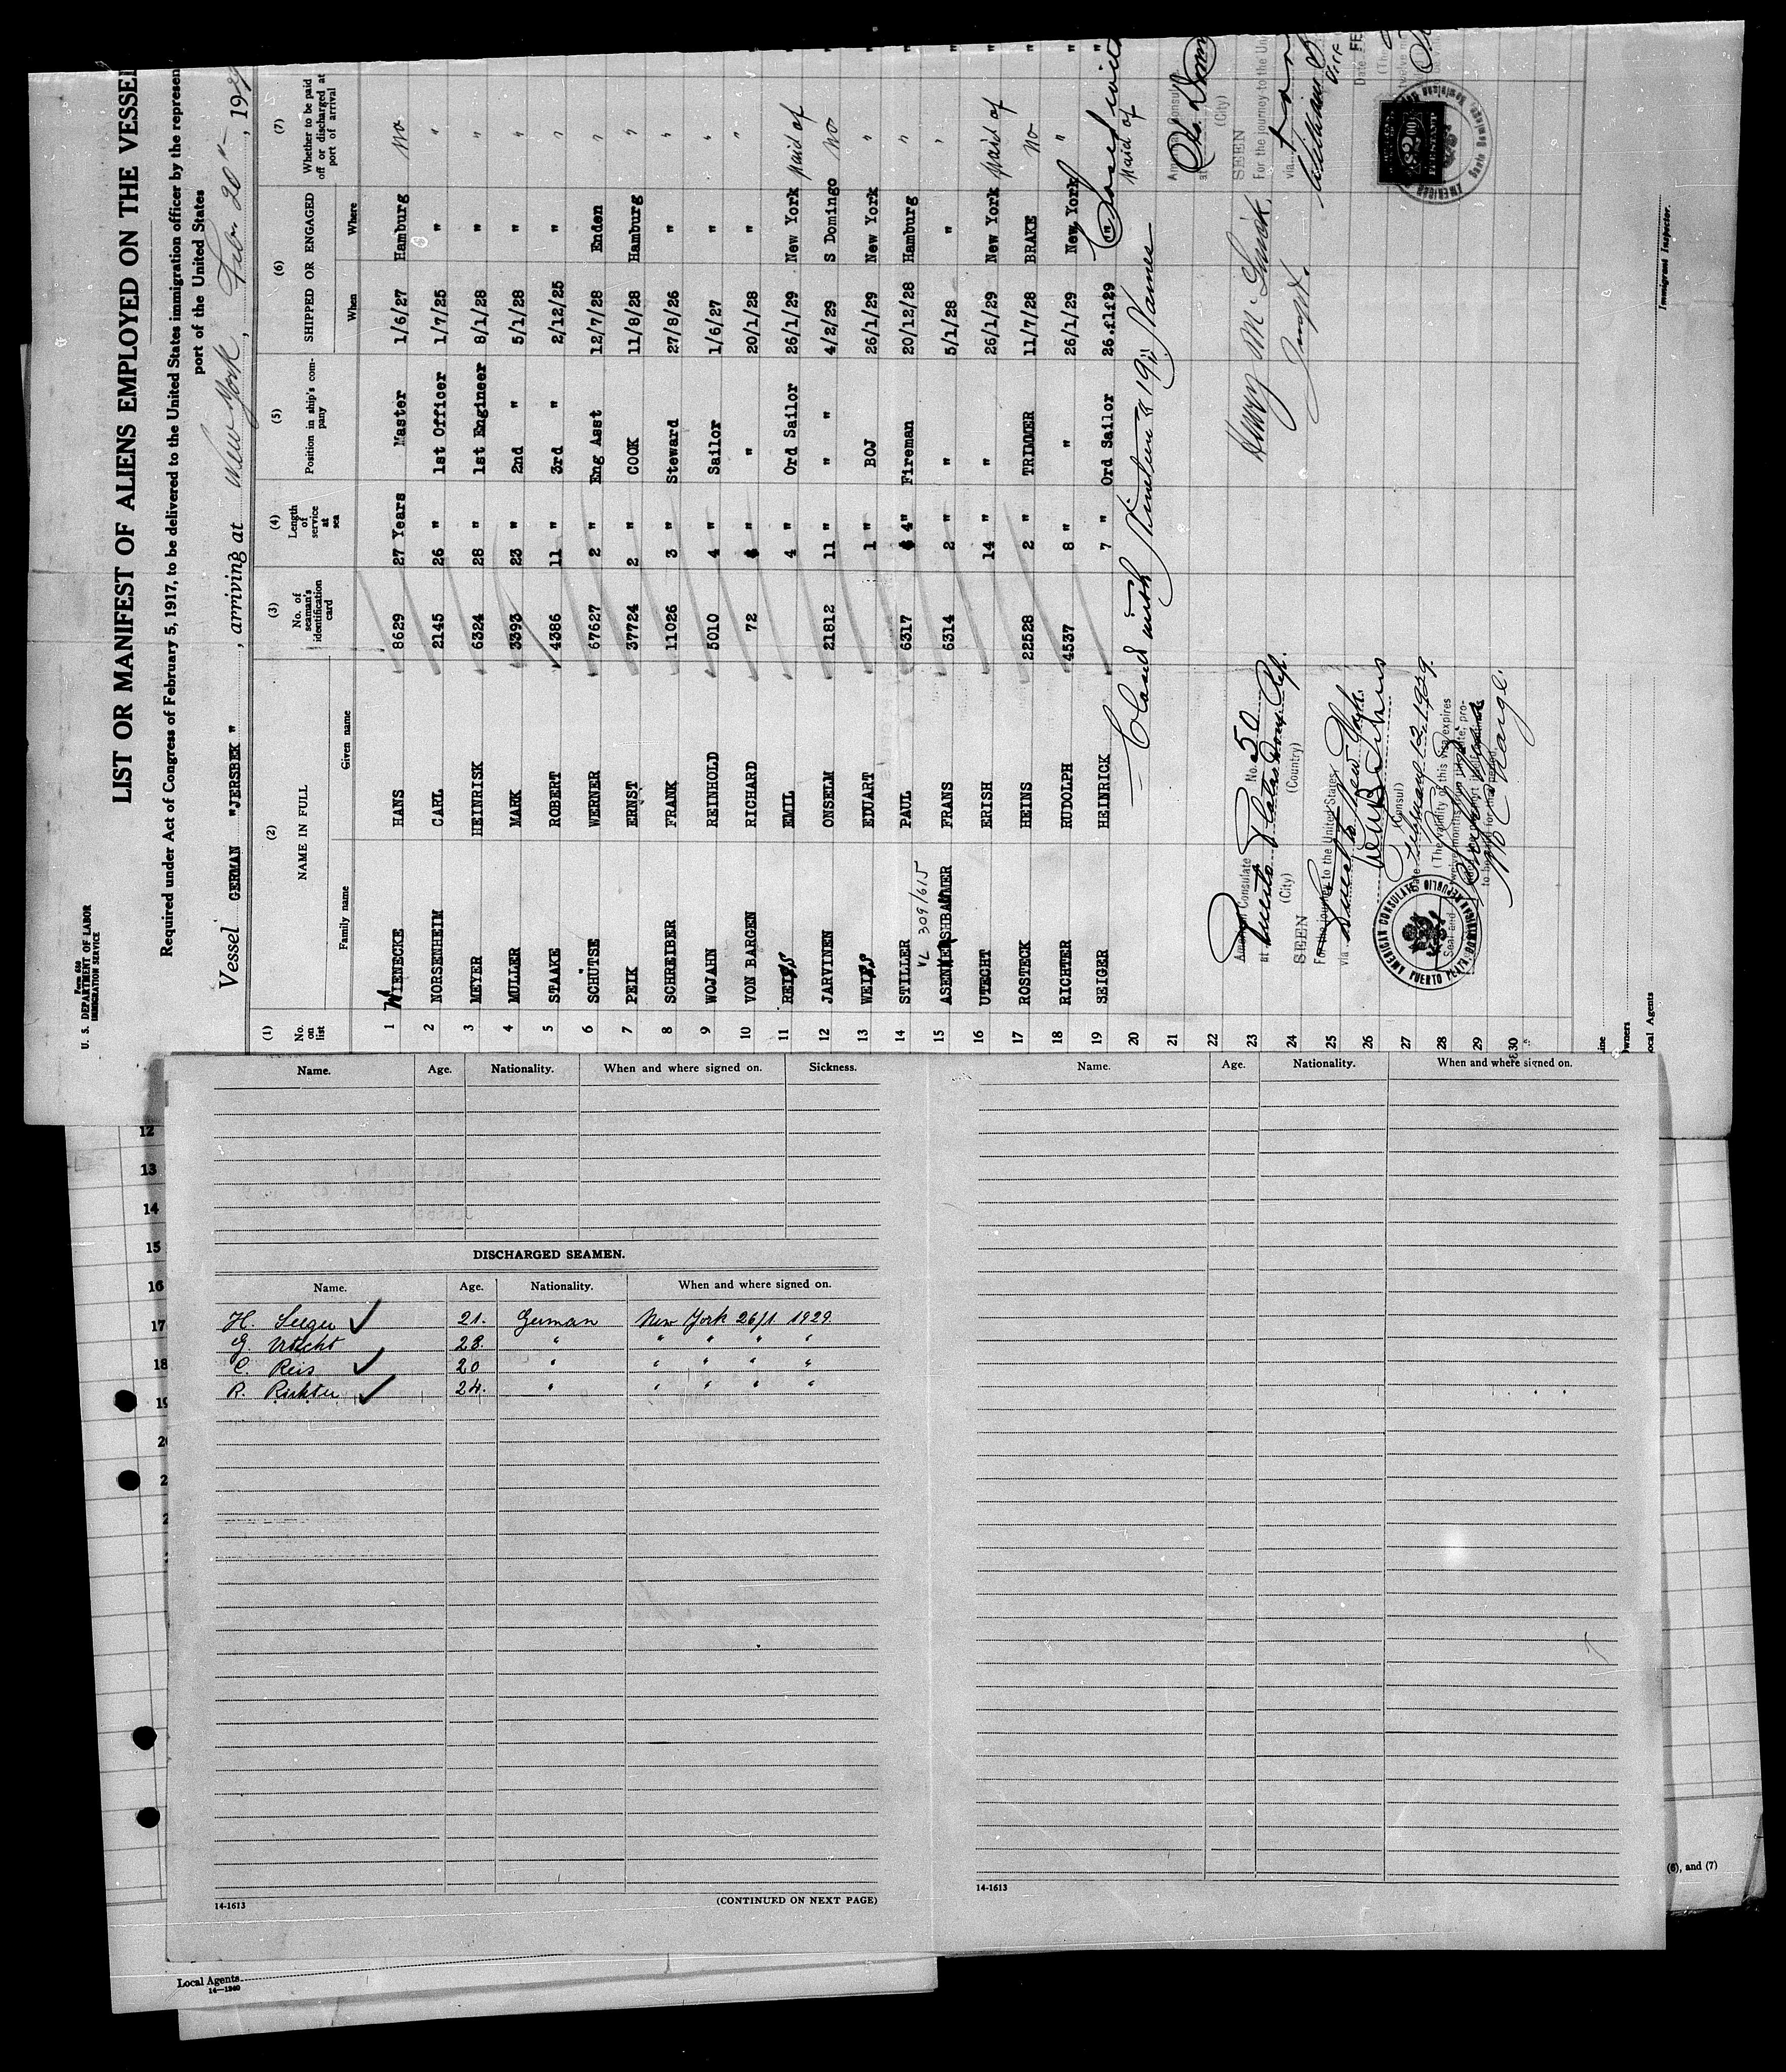 Form 680
U. S. DEPARTMENT OF LABOR
IMMIGRATION SERVICE
LIST OR MANIFEST OF ALIENS EMPLOYED ON THE VESSEL
Required under Act of Congress of February 5, 1917, to be delivered to the United States immigration officer by the represen
port of the United States
Vessel GERMAN "JERSBEK", arriving at New York, Feb 20, 1929
(1) (2) (3) (4) (5) (6) (7)
No. on list NAME IN FULL No. of seaman's identification card Length of service at sea Position in ship's company SHIPPED OR ENGAGED Whether to be paid off or discharged at port of arrival
Family name Given name When Where
1 WIENECKE HANS 8629 27 Years Master 1/6/27 Hamburg No
2 NORSENHEIM CARL 2145 26 " 1st Officer 1/7/25 " "
3 MEYER HEINRISK 6324 28 " 1st Engineer 8/1/28 " "
4 MULLER MARK 3393 23 " 2nd " 5/1/28 " "
5 STAAKE ROBERT 4386 11 " 3rd " 2/12/25 " "
6 SCHUTSE WERNER 67627 2 " Eng Asst 12/7/28 Enden "
7 PEIK ERNST 37724 2 " COOK 11/8/28 Hamburg "
8 SCHREIBER FRANK 11026 3 " Steward 27/8/26 " "
9 WOJAHN REINHOLD 5010 4 " Sailor 1/6/27 " "
10 VON BARGEN RICHARD 72 " " 20/1/28 " "
11 REIS EMIL 4 " Ord Sailor 26/1/29 New York paid of
12 JARVINEN ONSELM 21812 11 " " 4/2/29 S Domingo No
13 WEISS EDUART 1 " BOJ 26/1/29 New York "
14 STILLER PAUL 6317 4 " Fireman 20/12/28 Hamburg "
VL 309/615
15 ASENSHBAMER FRANS 6314 2 " " 5/1/28 " "
16 UTECHT ERISH 14 " " 26/1/29 New York paid of
17 ROSTECK HEINS 22528 2 " TRIMMER 11/7/28 BRAKE No
18 RICHTER RUDOLPH 4537 8 " " 26/1/29 New York "
19 SEIGER HEINRICK 7 " Ord Sailor 26.1.29 " paid of
20 Closed with Nineteen "19" Names
21
22
23
24
25
26
27
28
29
30
American Consulate No. 50
at Puerto Plata Dom. Rep.
(City) (Country)
SEEN
For the journey to the United States
via direct to New York
Consul
Date February 12 1929.
(The validity of this visa expires
twelve months from this date, pro-
to be valid for that period.
AMERICAN CONSULATE
PUERTO PLATA, DOMINICAN REPUBLIC
Henry M
American Consul
at Sto. Dom
(City)
SEEN
For the journey to the Un
via
Date FE
(The
twelve m
$2.00
FEE STAMP
AMERICAN
Santo Domingo, Dominican Rep
Immigrant Inspector.
Line
Owners
Local Agents
12
13
14
15
16
17
18
19
Name. Age. Nationality. When and where signed on. Sickness.
DISCHARGED SEAMEN.
Name. Age. Nationality. When and where signed on.
H. Seeger 21. German New York 26/1 1929.
E. Utecht 28. " " " " "
E. Reis 20 " " " " "
R. Richter 24. " " " " "
14-1613 (CONTINUED ON NEXT PAGE)
Name. Age. Nationality. When and where signed on.
14-1613
(6), and (7)
Local Agents
14—1240